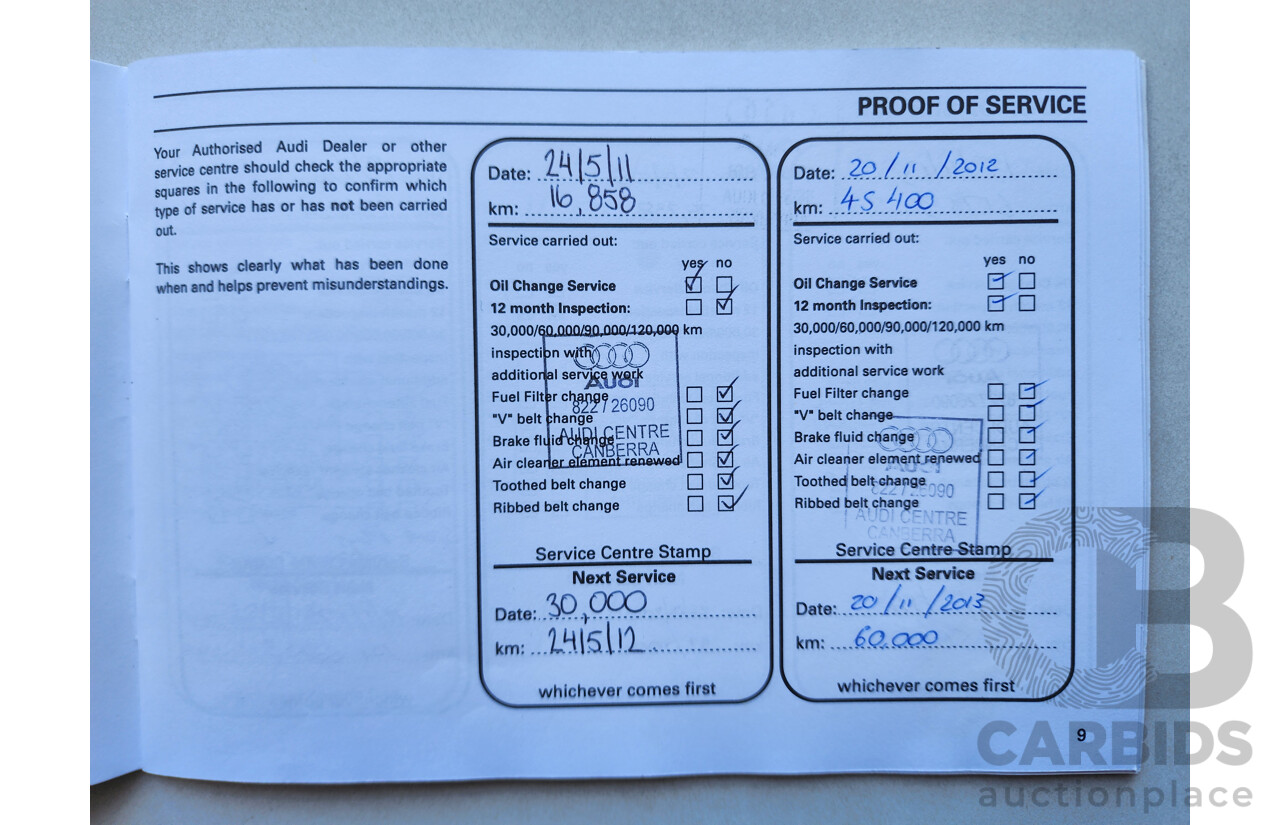 PROOF OF SERVICE
Your Authorised Audi Dealer or other
service centre should check the appropriate
squares in the following to confirm which
type of service has or has not been carried
out.
This shows clearly what has been done
when and helps prevent misunderstandings.
Date: 24/5/11
km: 16,858
Service carried out:
yes no
Oil Change Service
12 month Inspection:
30,000/60,000/90,000/120,000 km
inspection with
additional service work
Fuel Filter change
"V" belt change
Brake fluid change
Air cleaner element renewed
Toothed belt change
Ribbed belt change
Audi
822 / 26090
AUDI CENTRE
CANBERRA
Service Centre Stamp
Next Service
Date: 30,000
km: 24/5/12
whichever comes first
Date: 20/11/2012
km: 45 400
Service carried out:
yes no
Oil Change Service
12 month Inspection:
30,000/60,000/90,000/120,000 km
inspection with
additional service work
Fuel Filter change
"V" belt change
Brake fluid change
Air cleaner element renewed
Toothed belt change
Ribbed belt change
Audi
822 / 26090
AUDI CENTRE
CANBERRA
Service Centre Stamp
Next Service
Date: 20/11/2013
km: 60.000
whichever comes first
9
CB
CARBIDS
auctionplace